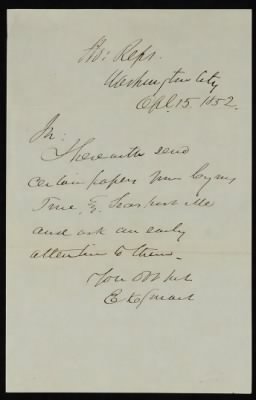 Ho: Reps.
Washington City
Apl. 15. 1852.
Sir:
I herewith send
certain papers from Cyrus
True, Esq. Me
and ask an early
attention to them.
Your Obt Svt